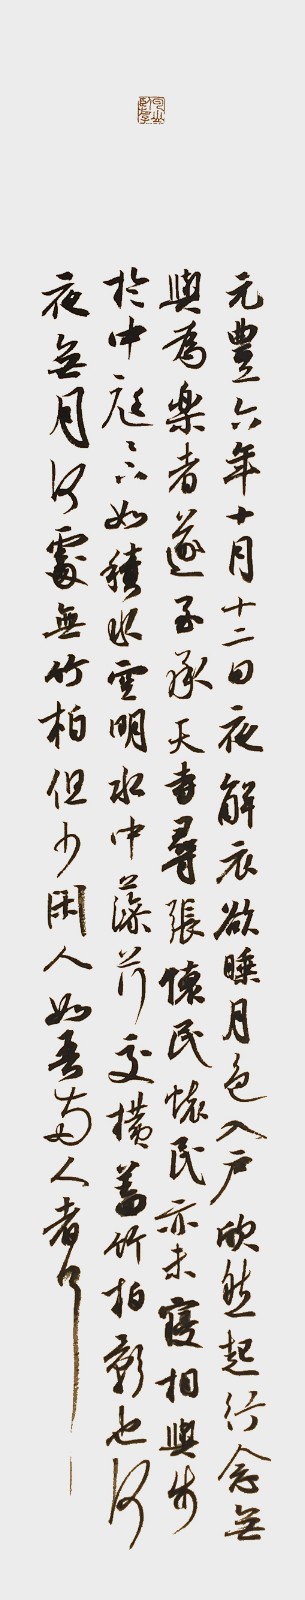 元豐六年十月十二日夜解衣欲睡月色入户欣然起行念無
與為樂者遂至承天寺尋張懷民懷民亦未寢相與步
於中庭〻下如積水空明水中藻荇交橫蓋竹柏影也何
夜無月何處無竹柏但少閑人如吾兩人者耳